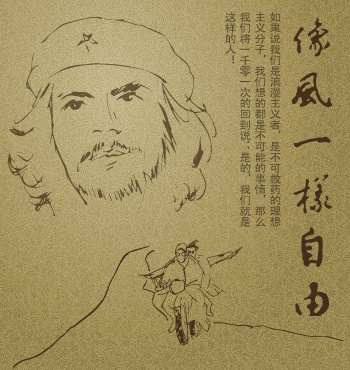 像風一樣自由
如果说我们是浪漫主义者，是不可救药的理想
主义分子，我们想的都是不可能的事情，那么
我们将一千零一次的回到说，是的，我们就是
这样的人！